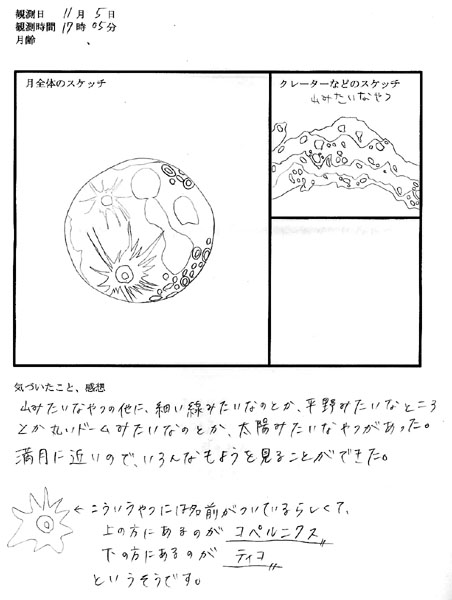 観測日 11月 5日
観測時間 17時 05分
月齢
月全体のスケッチ
クレーターなどのスケッチ
山みたいなやつ
気づいたこと、感想
山みたいなやつの他に、細い線みたいなのとか、平野みたいなところ
とか丸いドームみたいなのとか、太陽みたいなやつがあった。
満月に近いので、いろんなもようを見ることができた。
←こういうやつには名前がついているらしくて、
上の方にあるのが コペルニクス
下の方にあるのが ティコ
というそうです。